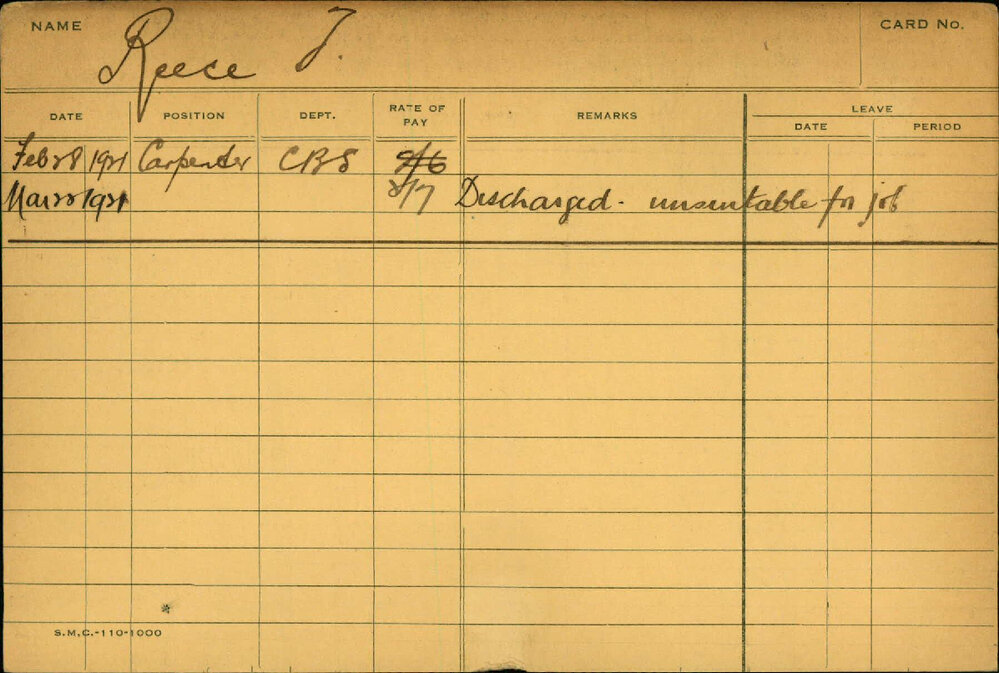 NAME Reece J. CARD No.
DATE POSITION DEPT. RATE OF PAY REMARKS LEAVE
DATE PERIOD
Feb 28 1921 Carpenter CBS 2/6
Mar 22 1921 2/7 Discharged - unsuitable for job
S.M.C.-110-1000